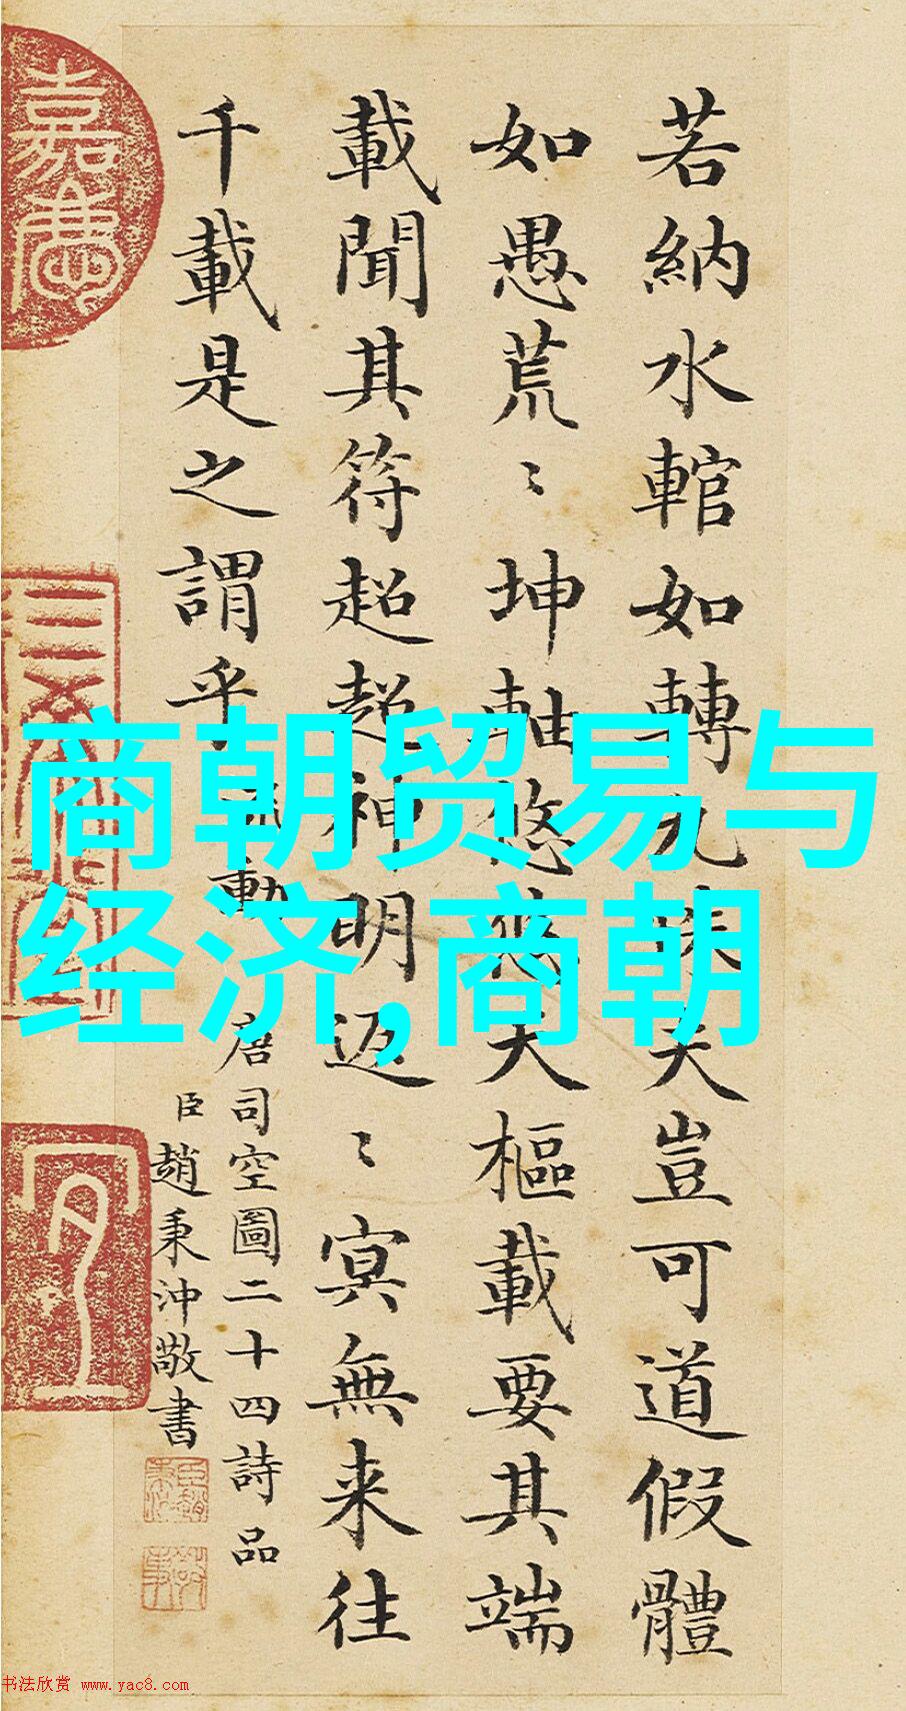 若納水輨如轉丸珠夫豈可道假體
如愚荒〻坤軸悠悠天樞載要其端
載聞其符超超神明返〻冥無来往
千載是之謂乎 流動
唐司空圖二十四詩品
臣趙秉沖敬書
商朝贸易与
经济,商朝
嘉慶
书法欣赏 www.yac8.com